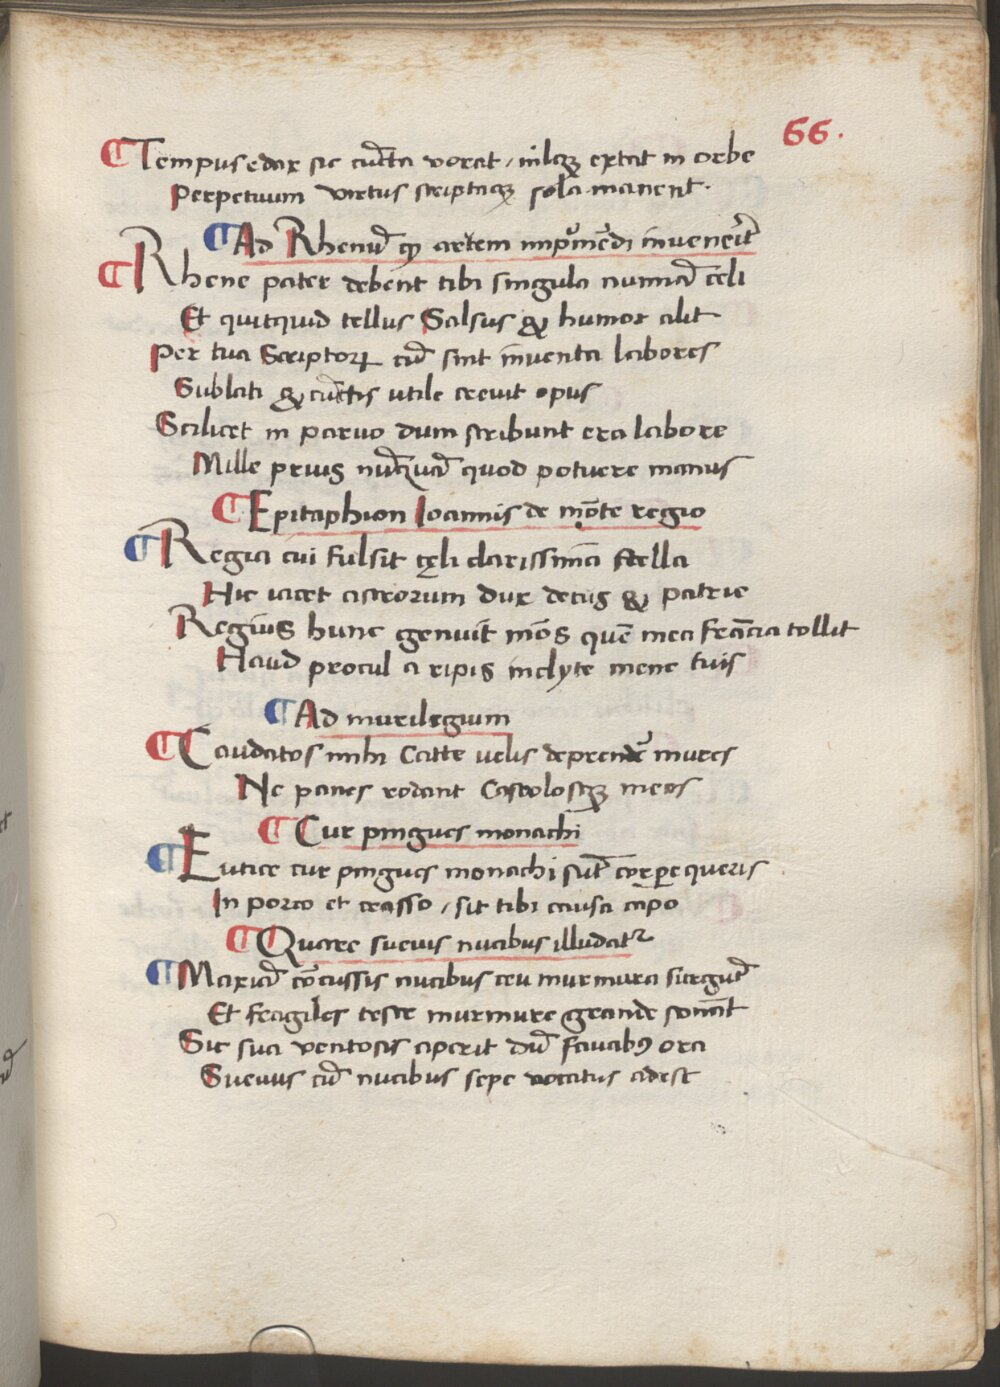 66.
¶ Tempus edax sic cu̅cta vorat / nilqꝫ extat in orbe
Perpetuum virtus scriptaqꝫ sola manent.
¶ Ad Rhenu̅ qꝫ artem impͥme̅di inveneͥit
¶ Rhene pater debent tibi singula numia̅ celi
Et quitquid tellus Salsus & humor alit
Per tua Scriptorꝝ cu̅ sint inventa labores
Sublati & cu̅ctis utile crevit opus
Scilicet in parvo dum scribunt era labore
Mille prius nu̅qua̅ quod potuere manus
¶ Epitaphion Ioannis de mo̅te regio
¶ Regia cui fulsit cęli clarissima stella
Hic iacet astrorum dux decus & patrie
Regius hunc genuit mo̅s que̅ mea fra̅cia tollit
Haud procul a ripis inclyte mene tuis
¶ Ad murilegium
¶ Caudatos mihi Catte velis deprende̅ mures
Ne panes rodant Caseolosqꝫ meos
¶ Cur pingues monachi
¶ Eutice cur pingues monachi su̅t corꝑe queris
In porco et crasso / sit tibi causa capo
¶ Quare suevis nucibus illudatᷣ
¶ Maxia̅ co̅cussis nucibus ceu murmura surgu̅t
Et fragiles teste murmure grande sona̅t
Sic sua ventosis aperit du̅ faucibꝰ ora
Suevus cu̅ nucibus sepe vocatus adest